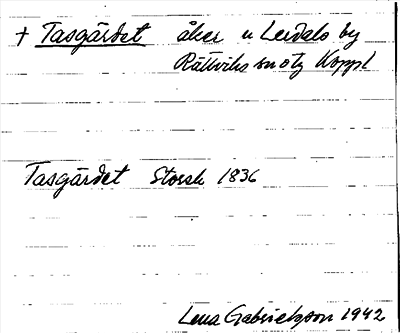 + Tasgärdet åker u Lerdals by
Rättviks sn o tg Koppl
Tasgärdet Storsk 1836
Lena Gabrielsson 1942